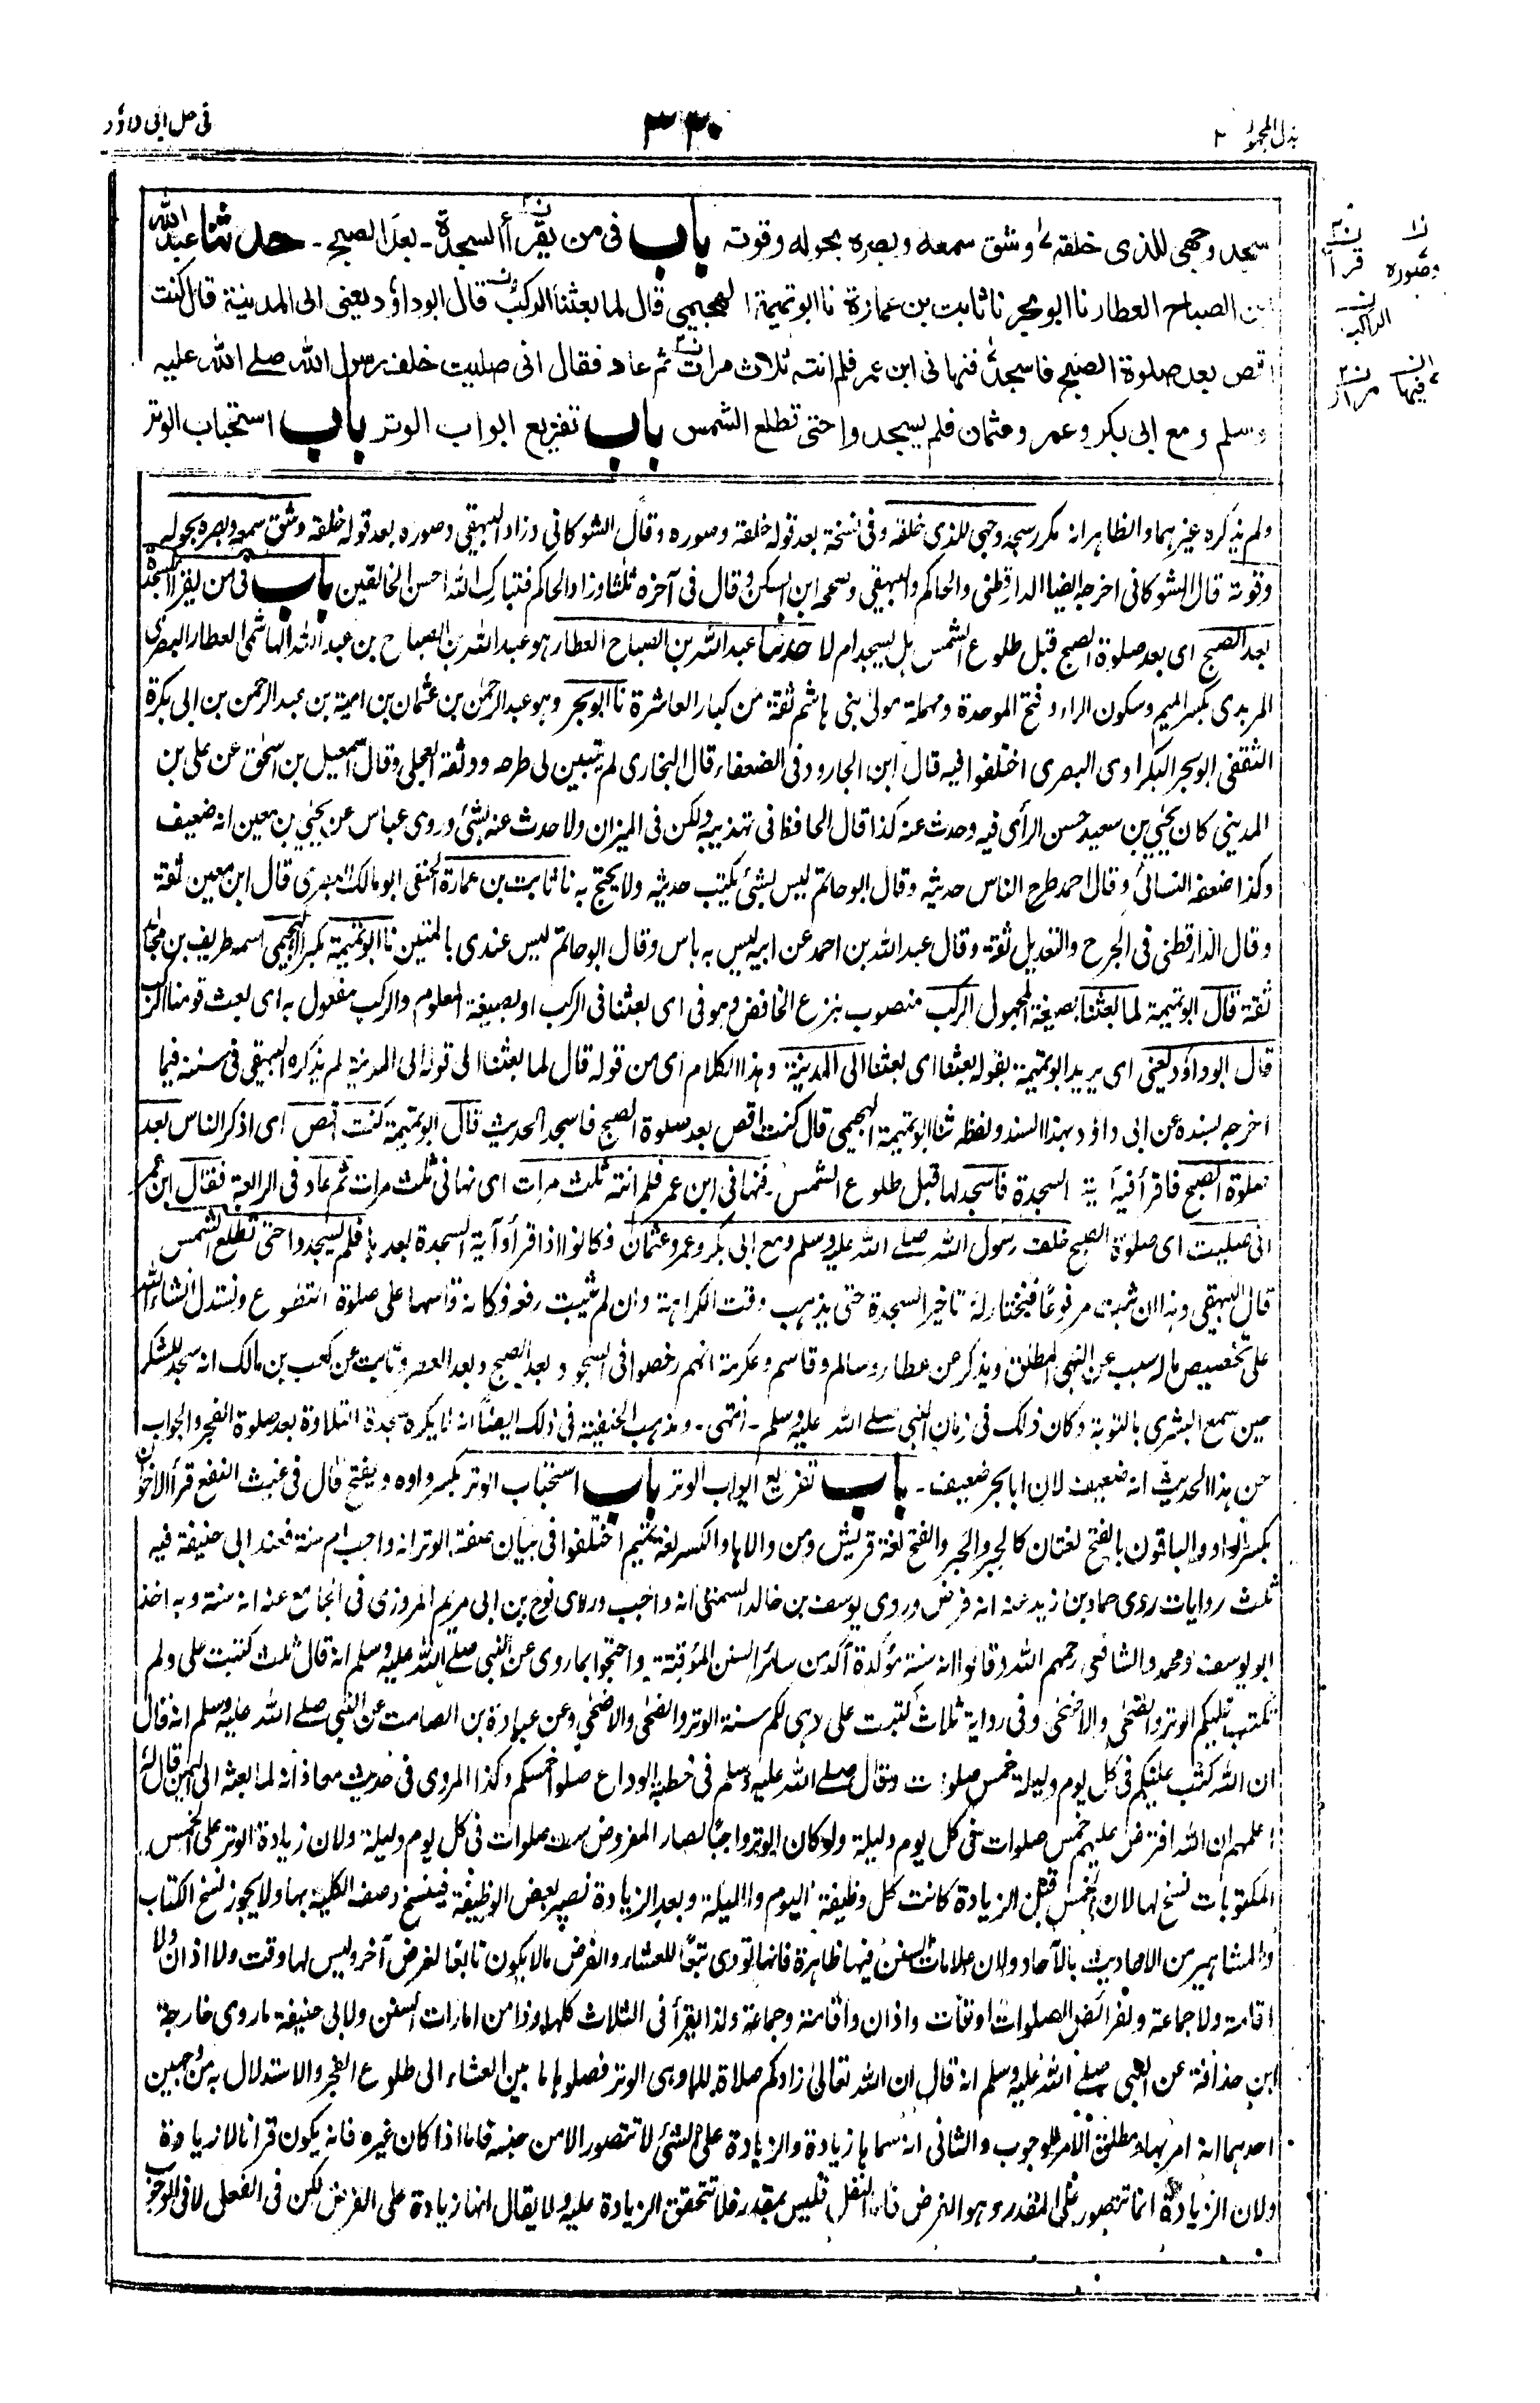 بذل المجهود ٢
٣٣٠
فى حل ابى داؤد
سجد وجهى للذى خلقه وشق سمعه وبصره بحوله وقوته باب فى من يقرأ السجدة بعد الصبح - حدثنا عبد الله
بن الصباح العطار نا ابو بحر نا ثابت بن عمارة نا ابو تميمة الهجيمى قال لما بعثنا الركب قال ابو داؤد يعنى الى المدينة قال كنت
اقص بعد صلوة الصبح فاسجد فنهانى ابن عمر فلم انته ثلاث مرات ثم عاد فقال انى صليت خلف رسول الله صلے الله عليه
وسلم ومع ابى بكر وعمر وعثمان فلم يسجدوا حتى تطلع الشمس باب تفريع ابواب الوتر باب استحباب الوتر
وصوره
قرأ
الراكب
فنهانى
مرار
ولم يذكره غيرهما والظاهر انه مكرر سجد وجهى للذى خلقه وفى نسخة بعد قوله خلقه وصوره وقال الشوكانى وزاد البيهقى وصوره بعد قوله خلقه وشق سمعه وبصره بحوله
وقوته قال الشوكانى اخرجه ايضا الدارقطنى والحاكم والبيهقى وصححه ابن السكن وقال فى آخره ثلثا وزاد الحاكم فتبارك الله احسن الخالقين باب فى من يقرأ السجدة
بعد الصبح اى بعد صلوة الصبح قبل طلوع الشمس بل يسجد ام لا حدثنا عبد الله بن الصباح العطار هو عبد الله بن الصباح بن عبد الله الهاشمى العطار البصرى
المربدى بكسر الميم وسكون الراء وفتح الموحدة ومهملة مولى بنى هاشم ثقة من كبار العاشرة نا ابو بحر وهو عبد الرحمن بن عثمان بن امية بن عبد الرحمن بن ابى بكرة
الثقفى ابو بحر البكراوى البصرى اختلفوا فيه قال ابن الجارود فى الضعفاء قال البخارى لم يتبين لى طرحه ووثقه العجلى وقال اسمعيل بن اسحق عن على بن
المدينى كان يحيى بن سعيد حسن الرأى فيه وحدث عنه كذا قال الحافظ فى تهذيبه ولكن فى الميزان ولا حدث عنه بشئ وروى عباس عن يحيى بن معين انه ضعيف
وكذا ضعفه النسائى وقال احمد طرح الناس حديثه وقال ابو حاتم ليس بشئ يكتب حديثه ولا يحتج به نا ثابت بن عمارة الحنفى ابو مالك البصرى قال ابن معين ثقة
وقال الدارقطنى فى الجرح والتعديل ثقة وقال عبد الله بن احمد عن ابيه ليس به باس وقال ابو حاتم ليس عندى بالمتين نا ابو تميمة بكسر الهجيمى اسمه طريف بن مجالد
ثقة قال ابو تميمة لما بعثنا بصيغة المجهول الركب منصوب بنزع الخافض وهو فى اى بعثنا فى الركب او بصيغة المعلوم والركب مفعول به اى بعث قومنا الركب
قال ابو داؤد يعنى اى يريد ابو تميمة بقوله بعثنا اى بعثنا الى المدينة وهذا الكلام اى من قوله قال لما بعثنا الى قوله الى المدينة لم يذكره البيهقى فى سننه فيما
اخرجه بسنده عن ابى داؤد بهذا السند ولفظه ثنا ابو تميمة الهجيمى قال كنت اقص بعد صلوة الصبح فاسجد الحديث قال ابو تميمة كنت اقص اى اذكر الناس بعد
صلوة الصبح فاقرأ فيه آية السجدة فاسجد لها قبل طلوع الشمس فنهانى ابن عمر فلم انته ثلث مرات اى نهانى ثلث مرات ثم عاد فى الرابعة فقال ابن عمر
انى صليت اى صلوة الصبح خلف رسول الله صلے الله عليه وسلم ومع ابى بكر وعمر وعثمان وكانوا اذا قرأوا آية السجدة بعدها فلم يسجدوا حتى تطلع الشمس
قال البيهقى وهذا ان ثبت مرفوعا فيختار له تاخير السجدة حتى يذهب وقت الكراهة وان لم يثبت رفعه فكانه قاسها على صلوة التطوع ونستدل انشاء الله
على تخصيص ماله سبب عن النهى المطلق ويذكر عن عطاء وسالم وقاسم وعكرمة انهم رخصوا فى السجود بعد الصبح وبعد العصر وثابت عن كعب بن مالك انه سجد للشكر
حين سمع البشرى بالتوبة وكان ذلك فى زمان النبى صلے الله عليه وسلم - انتهى - ومذهب الحنفية فى ذلك ايضا انه لا يكره سجدة التلاوة بعد صلوة الفجر والجواب
عن هذا الحديث انه ضعيف لان ابا بحر ضعيف - باب تفريع ابواب الوتر باب استحباب الوتر بكسر واوه ويفتح قال فى غيث النفع قرأ الاخوان
بكسر الواو والباقون بالفتح لغتان كالحبر والحبر والفتح لغة قريش ومن والاها والكسر لغة تميم اختلفوا فى بيان صفة الوتر انه واجب ام سنة فعند ابى حنيفة فيه
ثلث روايات روى حماد بن زيد عنه انه فرض وروى يوسف بن خالد السمتى انه واجب وروى نوح بن ابى مريم المروزى فى الجامع عنه انه سنة وبه اخذ
ابو يوسف ومحمد والشافعى رحمهم الله وقالوا انه سنة مؤكدة آكد من سائر السنن المؤقتة واحتجوا بما روى عن النبى صلے الله عليه وسلم انه قال ثلث كتبت على ولم
تكتب عليكم الوتر والضحى والاضحى وفى رواية ثلاث كتبت على وهى لكم سنة الوتر والضحى والاضحى وعن عبادة بن الصامت عن النبى صلے الله عليه وسلم انه قال
ان الله كتب عليكم فى كل يوم وليلة خمس صلوات وقال صلے الله عليه وسلم فى خطبة الوداع صلوا خمسكم وكذا المروى فى حديث معاذ انه لما بعثه الى اليمن قال له
اعلمهم ان الله افترض عليهم خمس صلوات فى كل يوم وليلة ولو كان الوتر واجبا لصار المفروض ست صلوات فى كل يوم وليلة ولان زيادة الوتر على الخمس
المكتوبات نسخ لها لان الخمس قبل الزيادة كانت كل وظيفة اليوم والليلة وبعد الزيادة تصير بعض الوظيفة فينسخ وصف الكلية بها ولا يجوز نسخ الكتاب
والمشاهير من الاحاديث بالآحاد ولان علامات السنن فيها ظاهرة فانها تودى تبعا للعشاء والفرض ما لا يكون تابعا لفرض آخر وليس لها وقت ولا اذان ولا
اقامة ولا جماعة ولفرائض الصلوات اوقات واذان واقامة وجماعة ولذا يقرأ فى الثلاث كلها وذا من امارات السنن ولابى حنيفة ما روى خارجة
ابن حذافة عن النبى صلے الله عليه وسلم انه قال ان الله تعالى زادكم صلاة الا وهى الوتر فصلوها ما بين العشاء الى طلوع الفجر والاستدلال به من وجهين
احدهما انه امر بها ومطلق الامر للوجوب والثانى انه سماها زيادة والزيادة على الشئ لا تتصور الا من جنسه فاما اذا كان غيره فانه يكون قرانا لا زيادة
ولان الزيادة انما تتصور على المقدر وهو الفرض فاما النفل فليس بمقدر فلا تتحقق الزيادة عليه ولا يقال انها زيادة على الفرض لكن فى الفعل لا فى الوجوب